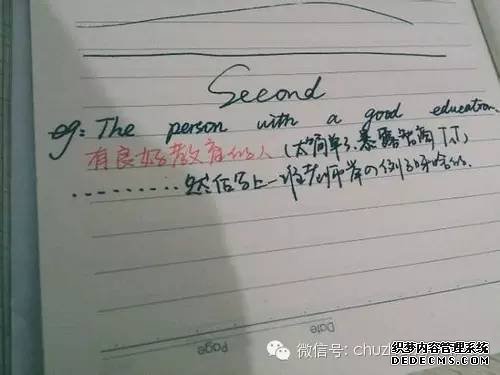 Second
eg: The person with a good education.
有良好教育的人 (太简单了.暴露智商TT)
......... 然后写上一 老师举の例 啥的.
Date
Page
微信号: chuzh
织梦内容管理系统
DEDECMS.COM